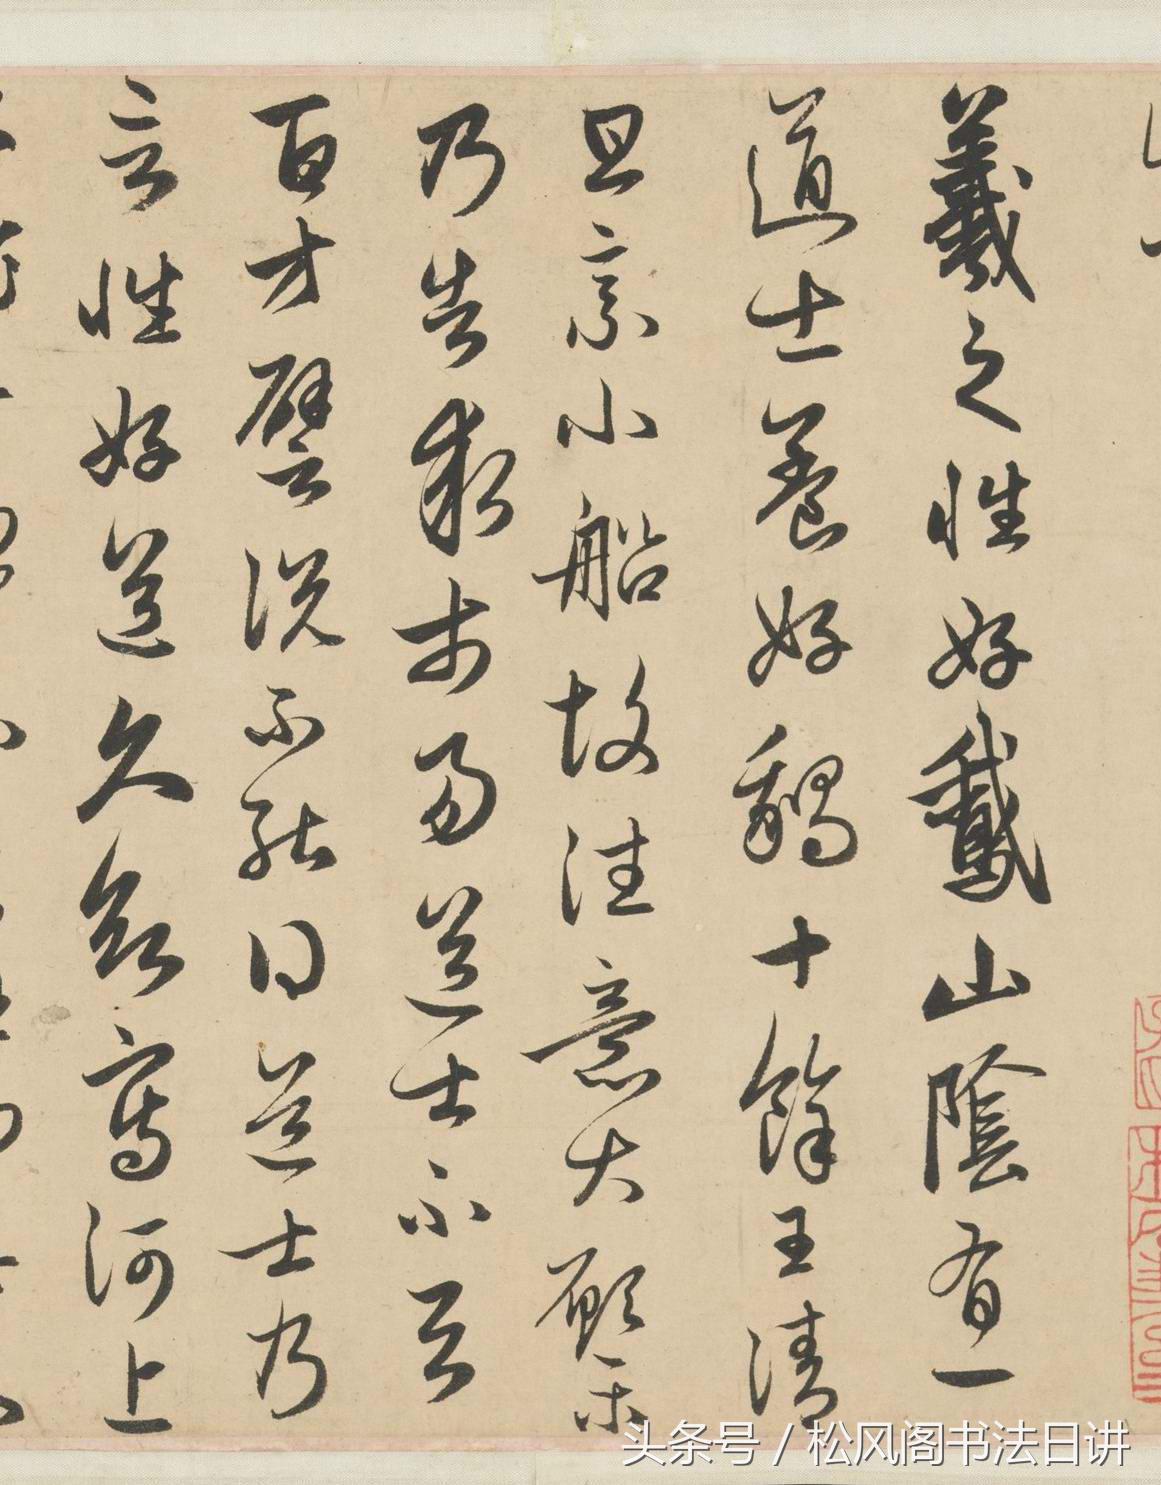 羲之性好鵞山陰有一
道士養好鵝十餘王清
旦乘小船故往意大願樂
乃告求市易道士不与
百方譬説不能得道士乃
言性好道久欲寫河上
头条号 / 松风阁书法日讲